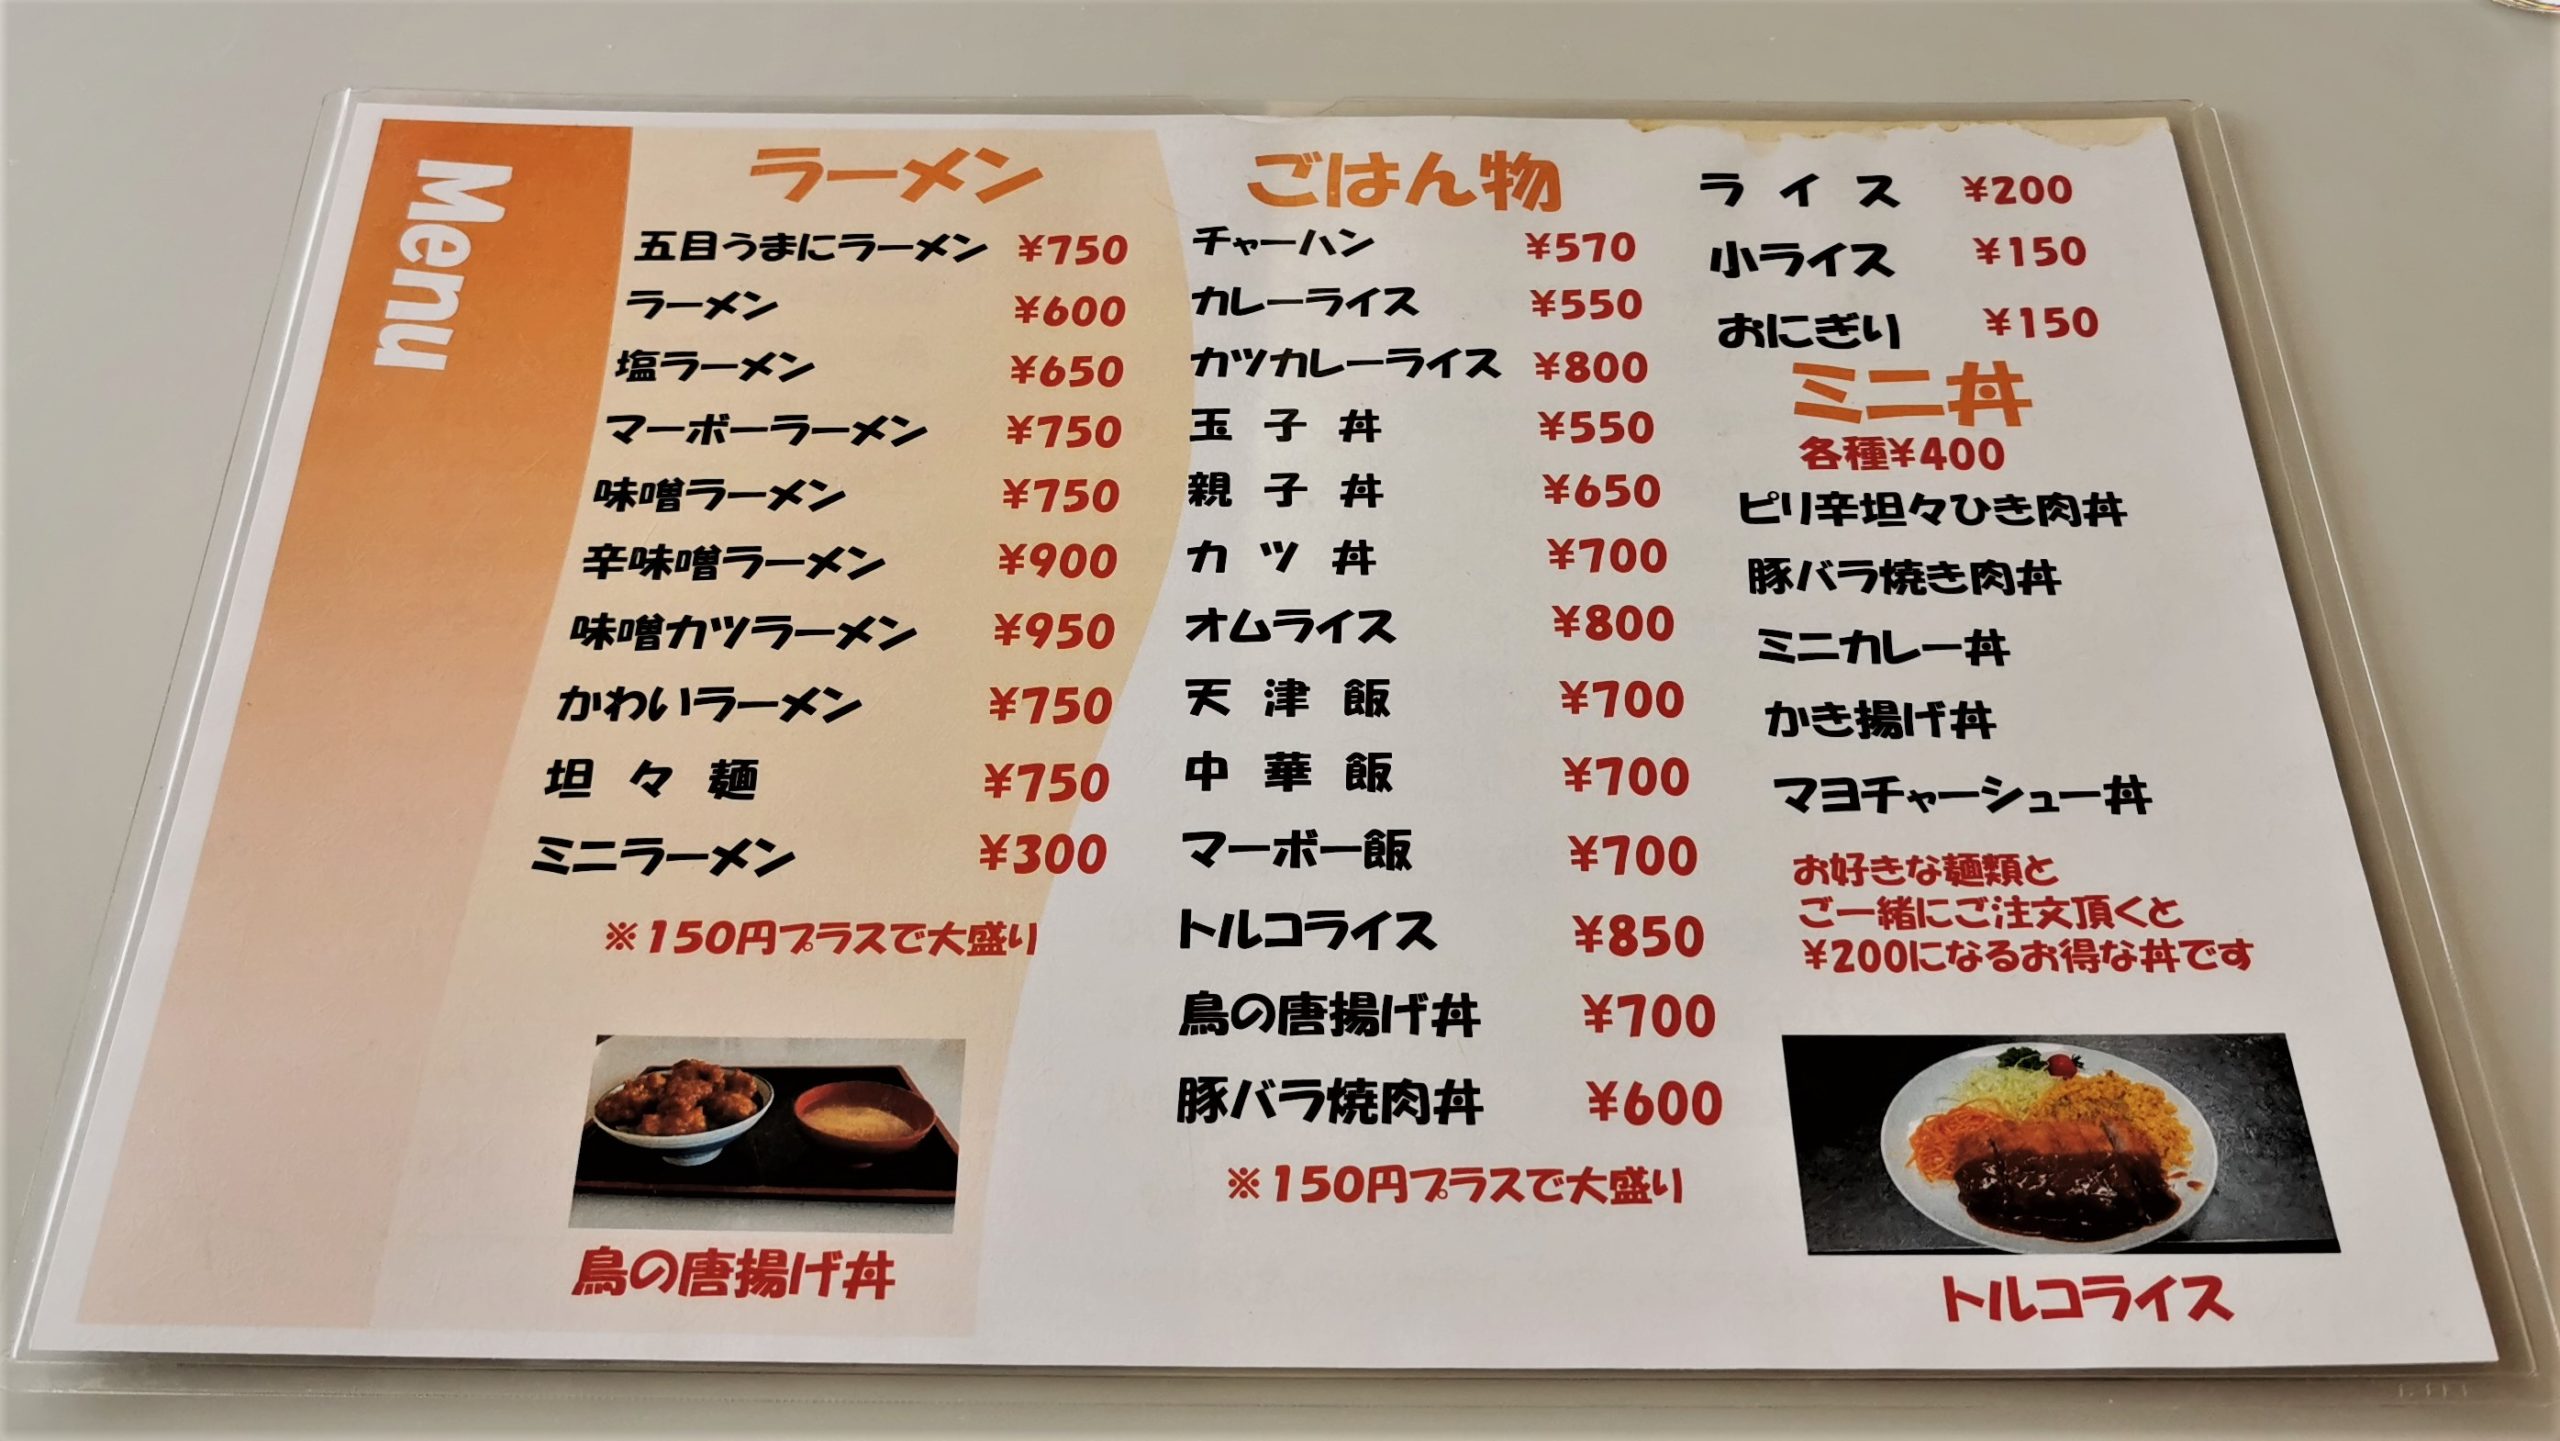 Menu
ラーメン
五目うまにラーメン ¥750
ラーメン ¥600
塩ラーメン ¥650
マーボーラーメン ¥750
味噌ラーメン ¥750
辛味噌ラーメン ¥900
味噌カツラーメン ¥950
かわいラーメン ¥750
坦々麺 ¥750
ミニラーメン ¥300
※150円プラスで大盛り
鳥の唐揚げ丼
ごはん物
チャーハン ¥570
カレーライス ¥550
カツカレーライス ¥800
玉子丼 ¥550
親子丼 ¥650
カツ丼 ¥700
オムライス ¥800
天津飯 ¥700
中華飯 ¥700
マーボー飯 ¥700
トルコライス ¥850
鳥の唐揚げ丼 ¥700
豚バラ焼肉丼 ¥600
※150円プラスで大盛り
ライス ¥200
小ライス ¥150
おにぎり ¥150
ミニ丼
各種¥400
ピリ辛坦々ひき肉丼
豚バラ焼き肉丼
ミニカレー丼
かき揚げ丼
マヨチャーシュー丼
お好きな麺類と
ご一緒にご注文頂くと
¥200になるお得な丼です
トルコライス